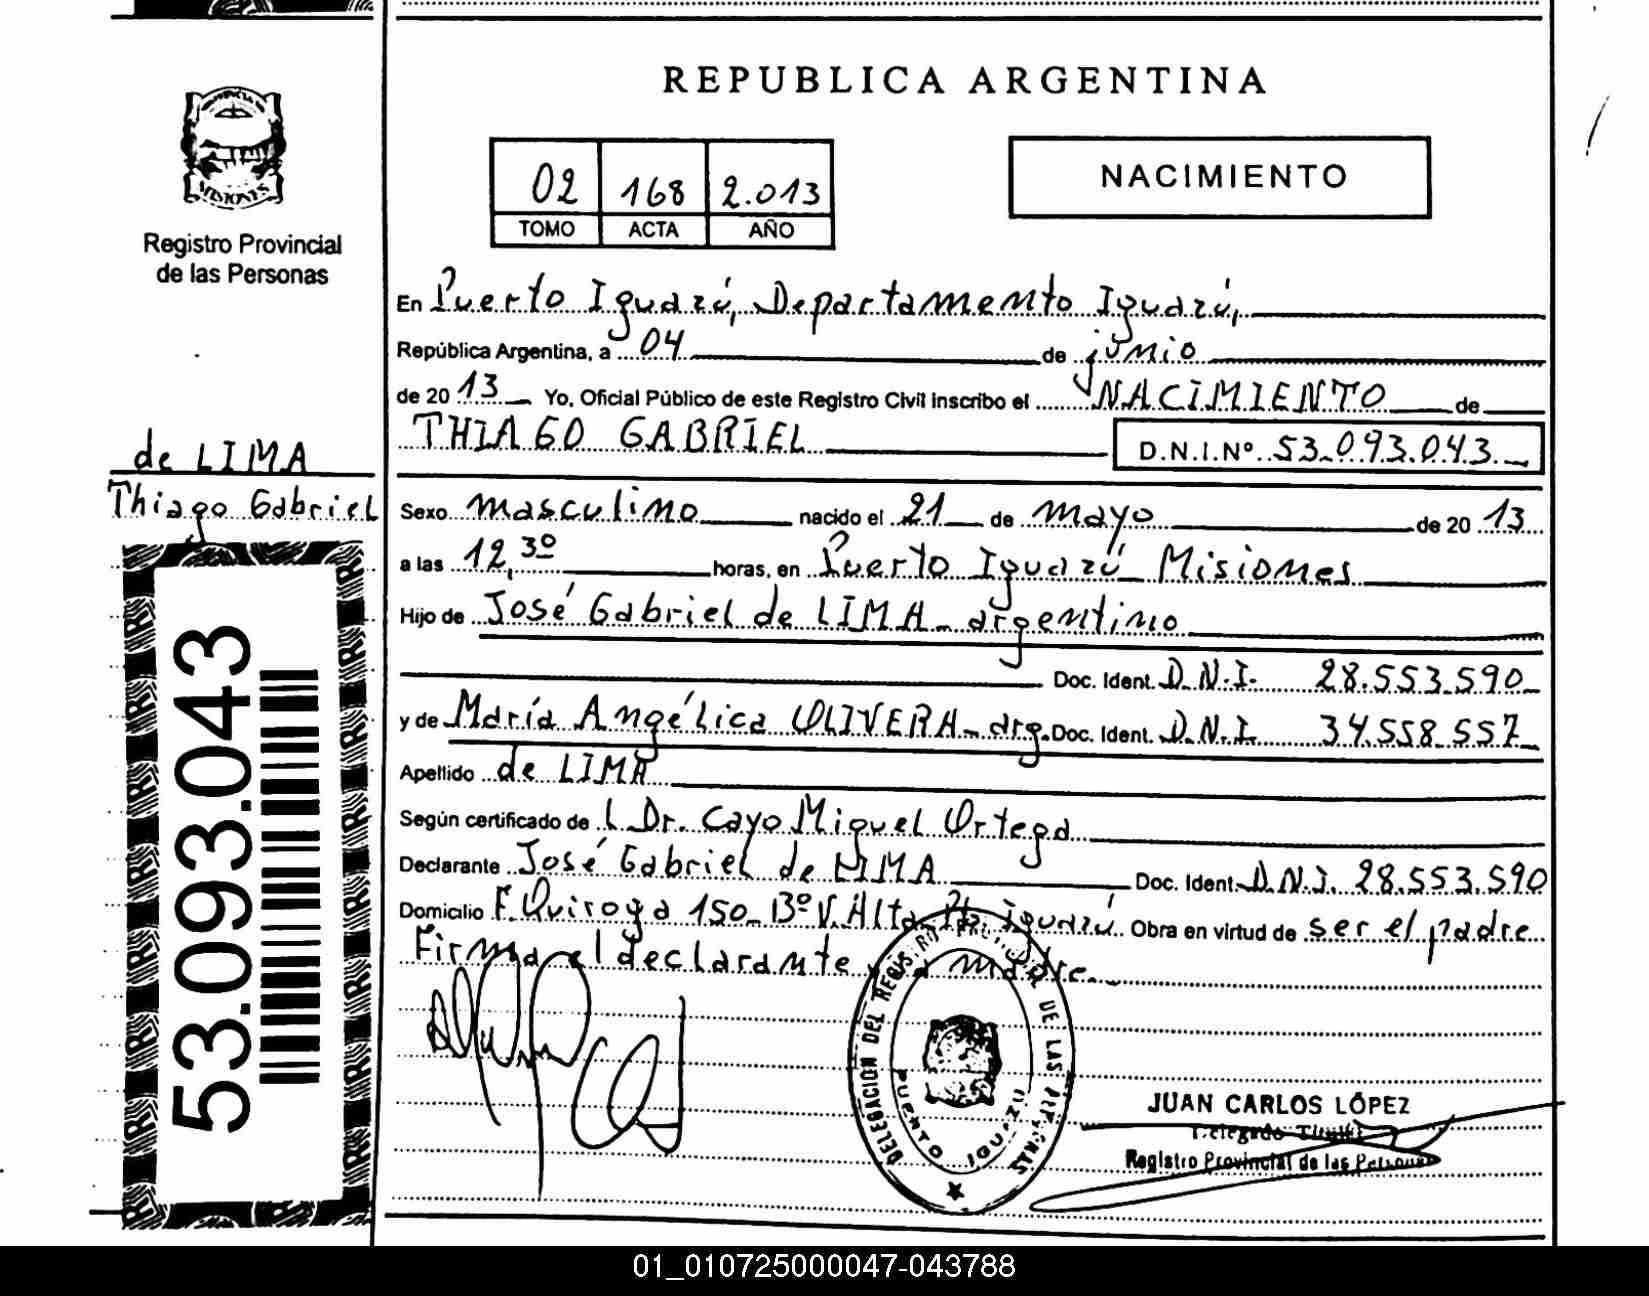 REPUBLICA ARGENTINA
MISIONES
Registro Provincial
de las Personas
02 168 2.013
TOMO ACTA AÑO
NACIMIENTO
En Puerto Iguazú, Departamento Iguazú,
República Argentina, a 04 de junio
de 20 13 Yo, Oficial Público de este Registro Civil inscribo el NACIMIENTO de
THIAGO GABRIEL D.N.I.Nº 53.093.043
de LIMA
Thiago Gabriel
53.093.043
Sexo masculino nacido el 21 de mayo de 20 13
a las 12,30 horas, en Puerto Iguazú Misiones
Hijo de José Gabriel de LIMA - argentino
Doc. Ident. D.N.I. 28.553.590
y de María Angélica OLIVERA - arg. Doc. Ident. D.N.I. 34.558.557
Apellido de LIMA
Según certificado de Dr. Cayo Miguel Ortega
Declarante José Gabriel de LIMA Doc. Ident. D.N.I. 28.553.590
Domicilio F. Quiroga 150 - Bº V. Alta Pto Iguazú Obra en virtud de ser el padre
Firma el declarante y la madre.
DELEGACION DEL REGISTRO PROVINCIAL DE LAS PERSONAS
PUERTO IGUAZU
JUAN CARLOS LÓPEZ
Delegado Titular
Registro Provincial de las Personas
01_010725000047-043788